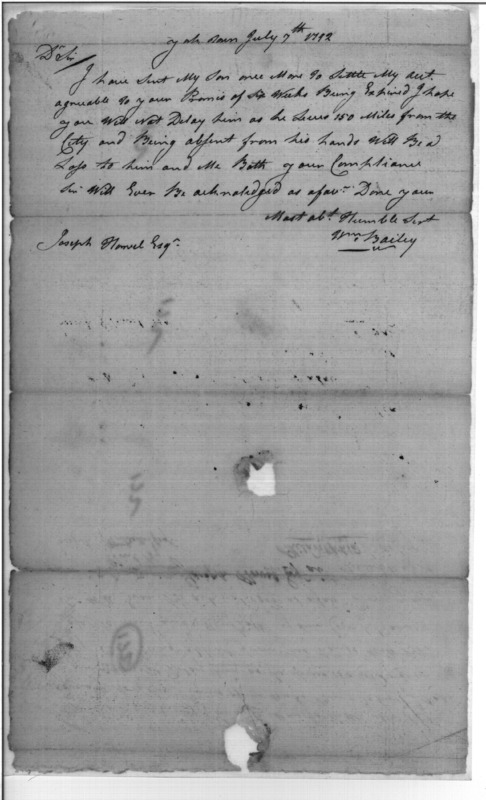 york town July 7th 1792
Dr Sir
I have Sent My Son once More to Settle My acct.
agreable to your Promis of Six Weeks Being Expired I hope
you Will Not Delay him as he Lives 150 Miles from the
City and Being absent from his hands Will Be a
Loss to him and Me Both your Compliance
Sir Will Ever Be acknoledged as a favr Done your
Most obt Humble Servt
Wm Bailey
Joseph Howel Esqr